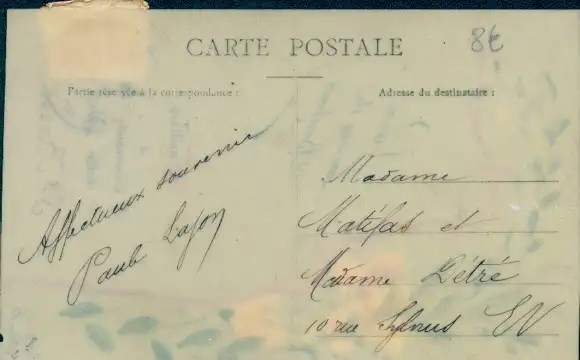 CARTE POSTALE
8€
Partie réservée à la correspondance :
Adresse du destinataire :
Affectueux souvenir
Paule Lafon
Madame
Matifas et
Madame Détré
10 rue Sylvius EV